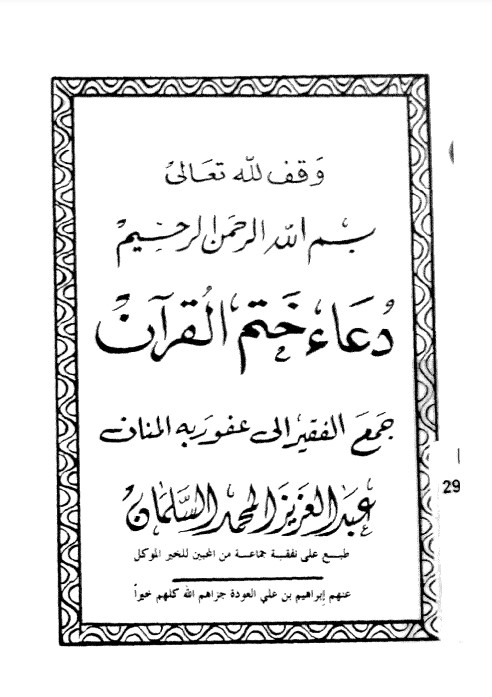 وَقف لله تعَالىٰ
بسم الله الرحمن الرحيم
دُعَاء ختم القُرآن
جمَعَ الفقير الى عفو ربه المنان
عبَد العَزيز المحمد السَّلمَان
طبع على نفقة جماعة من المحبين للخير الموكل
عنهم إبراهيم بن علي العودة جزاهم الله كلهم خيراً
29